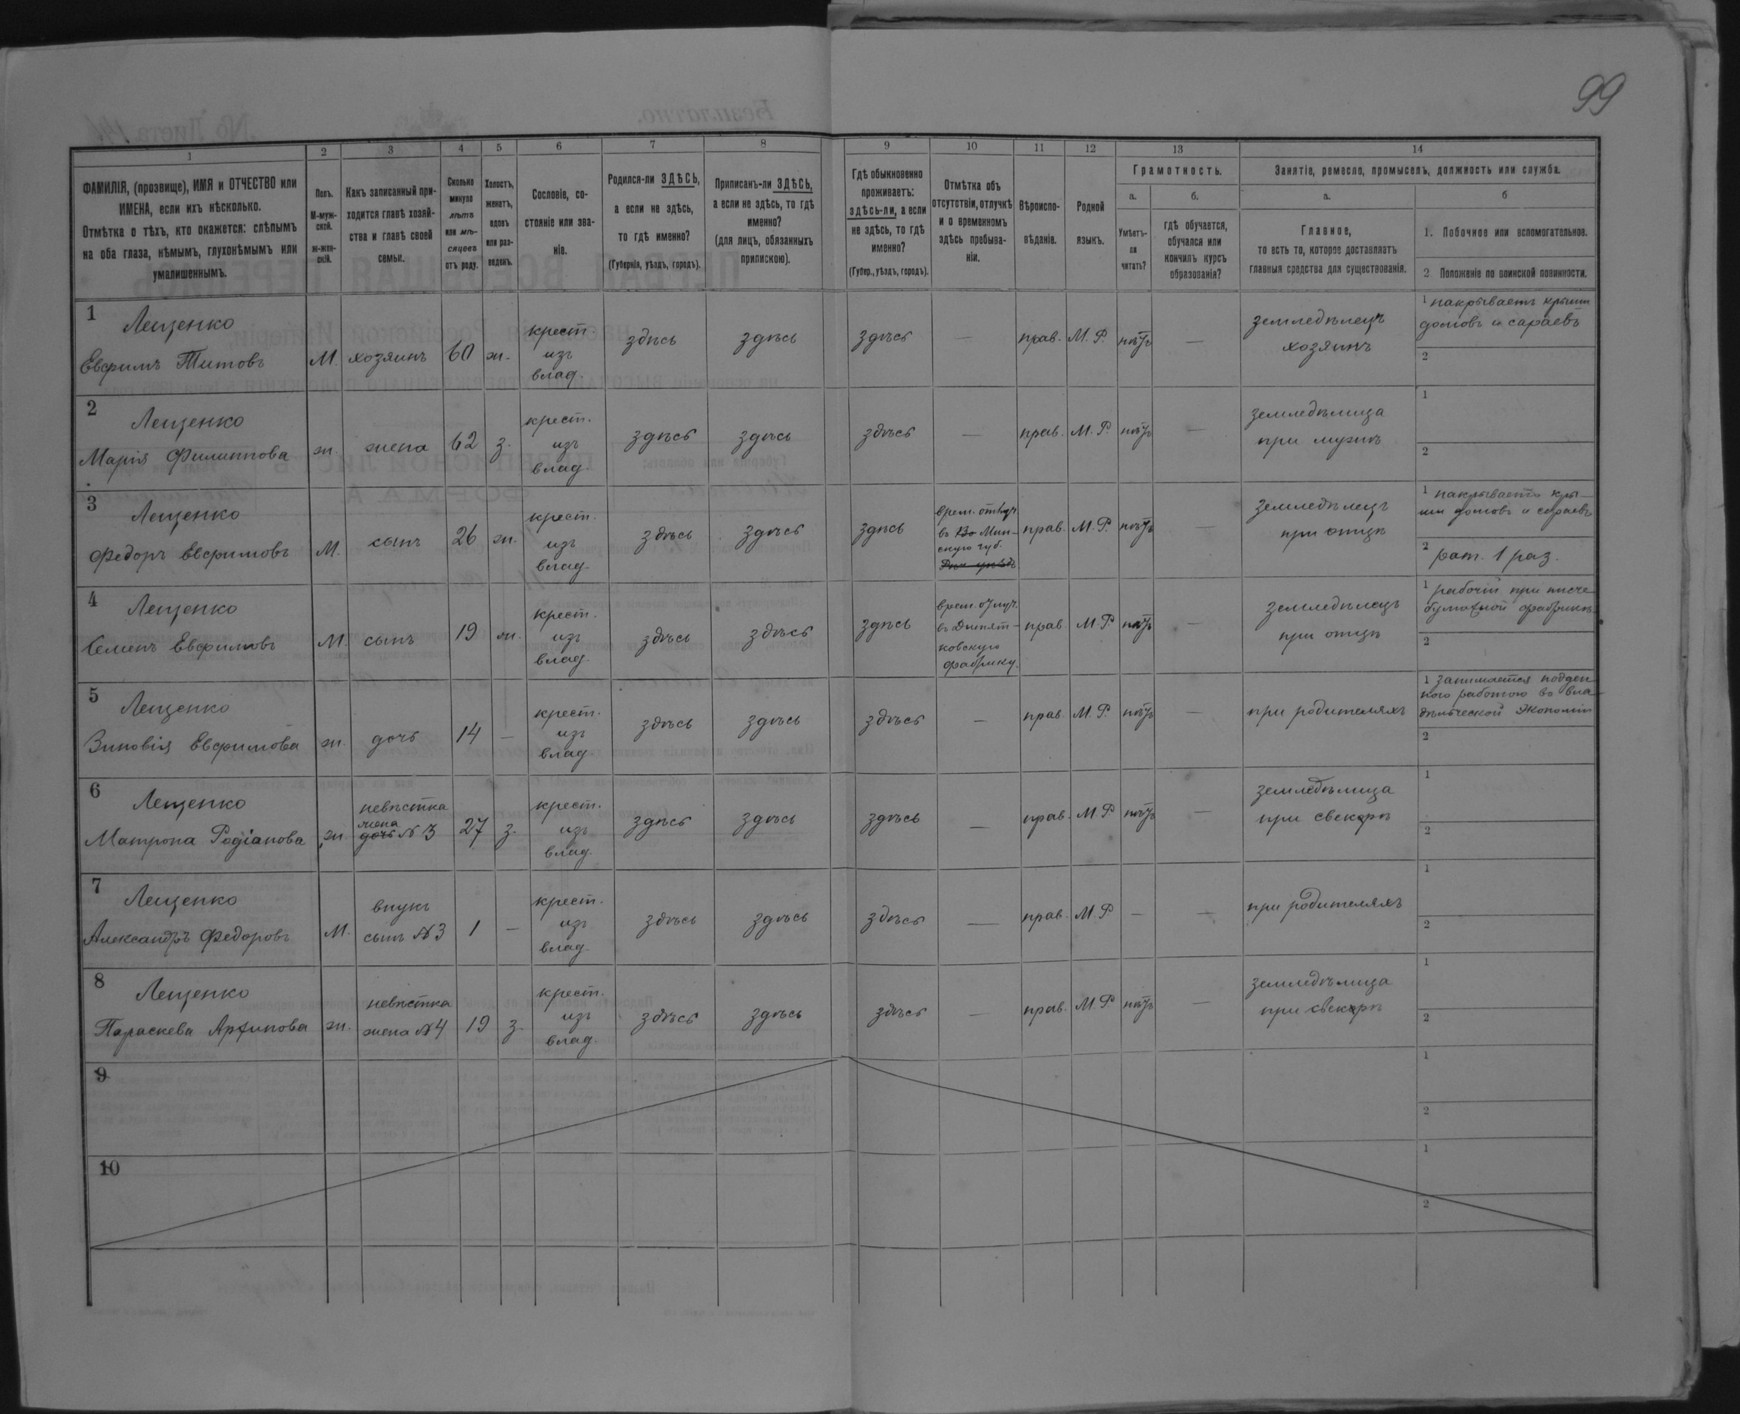 99
1 2 3 4 5 6 7 8 9 10 11 12 13 14
ФАМИЛІЯ, (прозвище), ИМЯ и ОТЧЕСТВО или
ИМЕНА, если ихъ нѣсколько.
Отмѣтка о тѣхъ, кто окажется: слѣпымъ
на оба глаза, нѣмымъ, глухонѣмымъ или
умалишеннымъ.
Полъ.
М-муж-
ской.
ж-жен-
скій.
Какъ записанный при-
ходится главѣ хозяй-
ства и главѣ своей
семьи.
Сколько
минуло
лѣтъ
или мѣ-
сяцевъ
отъ роду.
Холостъ,
женатъ,
вдовъ
или раз-
веденъ.
Сословіе, со-
стояніе или зва-
ніе.
Родился-ли ЗДѢСЬ,
а если не здѣсь,
то гдѣ именно?
(Губернія, уѣздъ, городъ).
Приписанъ-ли ЗДѢСЬ,
а если не здѣсь, то гдѣ
именно?
(для лицъ, обязанныхъ
припискою).
Гдѣ обыкновенно
проживаетъ:
здѣсь-ли, а если
не здѣсь, то гдѣ
именно?
(Губер., уѣздъ, городъ).
Отмѣтка объ
отсутствіи, отлучкѣ
и о временномъ
здѣсь пребыва-
ніи.
Вѣроиспо-
вѣданіе.
Родной
языкъ.
Грамотность.
а. б.
Умѣетъ-
ли
читать?
гдѣ обучается,
обучался или
кончилъ курсъ
образованія?
Занятіе, ремесло, промыселъ, должность или служба.
а. б
Главное,
то есть то, которое доставляетъ
главныя средства для существованія.
1. Побочное или вспомогательное.
2 Положеніе по воинской повинности.
1 Лещенко
Евфимъ Титовъ М. хозяинъ 60 ж. крест. изъ влад. здѣсь здѣсь здѣсь — прав. М. Р. нѣтъ — земледѣлецъ хозяинъ
1 накрываетъ крыши
домовъ и сараевъ
2
2 Лещенко
Марія Филиппова ж. жена 62 з. крест. изъ влад. здѣсь здѣсь здѣсь — прав. М. Р. нѣтъ — земледѣлица при мужѣ
1
2
3 Лещенко
Федоръ Евфимовъ М. сынъ 26 ж. крест. изъ влад. здѣсь здѣсь здѣсь
врем. отлуч.
въ Мин-
скую губ.
прав. М. Р. нѣтъ — земледѣлецъ при отцѣ
1 накрываетъ кры-
ши домовъ и сараевъ
2 рат. 1 раз.
4 Лещенко
Семенъ Евфимовъ М. сынъ 19 ж. крест. изъ влад. здѣсь здѣсь здѣсь
врем. отлуч.
ковскую
фабрику.
прав М. Р. нѣтъ — земледѣлецъ при отцѣ
1 рабочій при писче
бумажной фабрикѣ
2
5 Лещенко
Зиновія Евфимова ж. дочь 14 — крест. изъ влад здѣсь здѣсь здѣсь — прав. М. Р. нѣтъ — при родителяхъ
1 занимается поден-
ною работою въ вла-
дѣльческой экономіи
2
6 Лещенко
Матрона Родіанова ж. невѣстка жена дочь № 3 27 з. крест. изъ влад. здѣсь здѣсь здѣсь — прав. М. Р нѣтъ — земледѣлица при свекрѣ
1
2
7 Лещенко
Александръ Федоровъ М. внукъ сынъ № 3 1 — крест. изъ влад. здѣсь здѣсь здѣсь — прав. М. Р — — при родителяхъ
1
2
8 Лещенко
Параскева Архипова ж. невѣстка жена № 4 19 з. крест. изъ влад. здѣсь здѣсь здѣсь — прав. М. Р нѣтъ — земледѣлица при свекрѣ
1
2
9
1
2
10
1
2